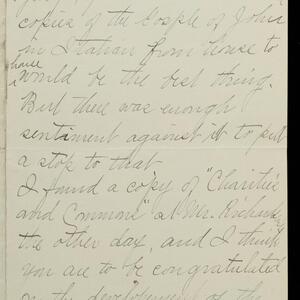 copies of the Gosple of John
in Italian from house to
house
would be the best thing.
But there was enough
sentiment against it to put
a stop to that
I found a copy of "Charities
and Commons" at Mr. Richards
the other day, and I think
you are to be congratulated
on the development of the